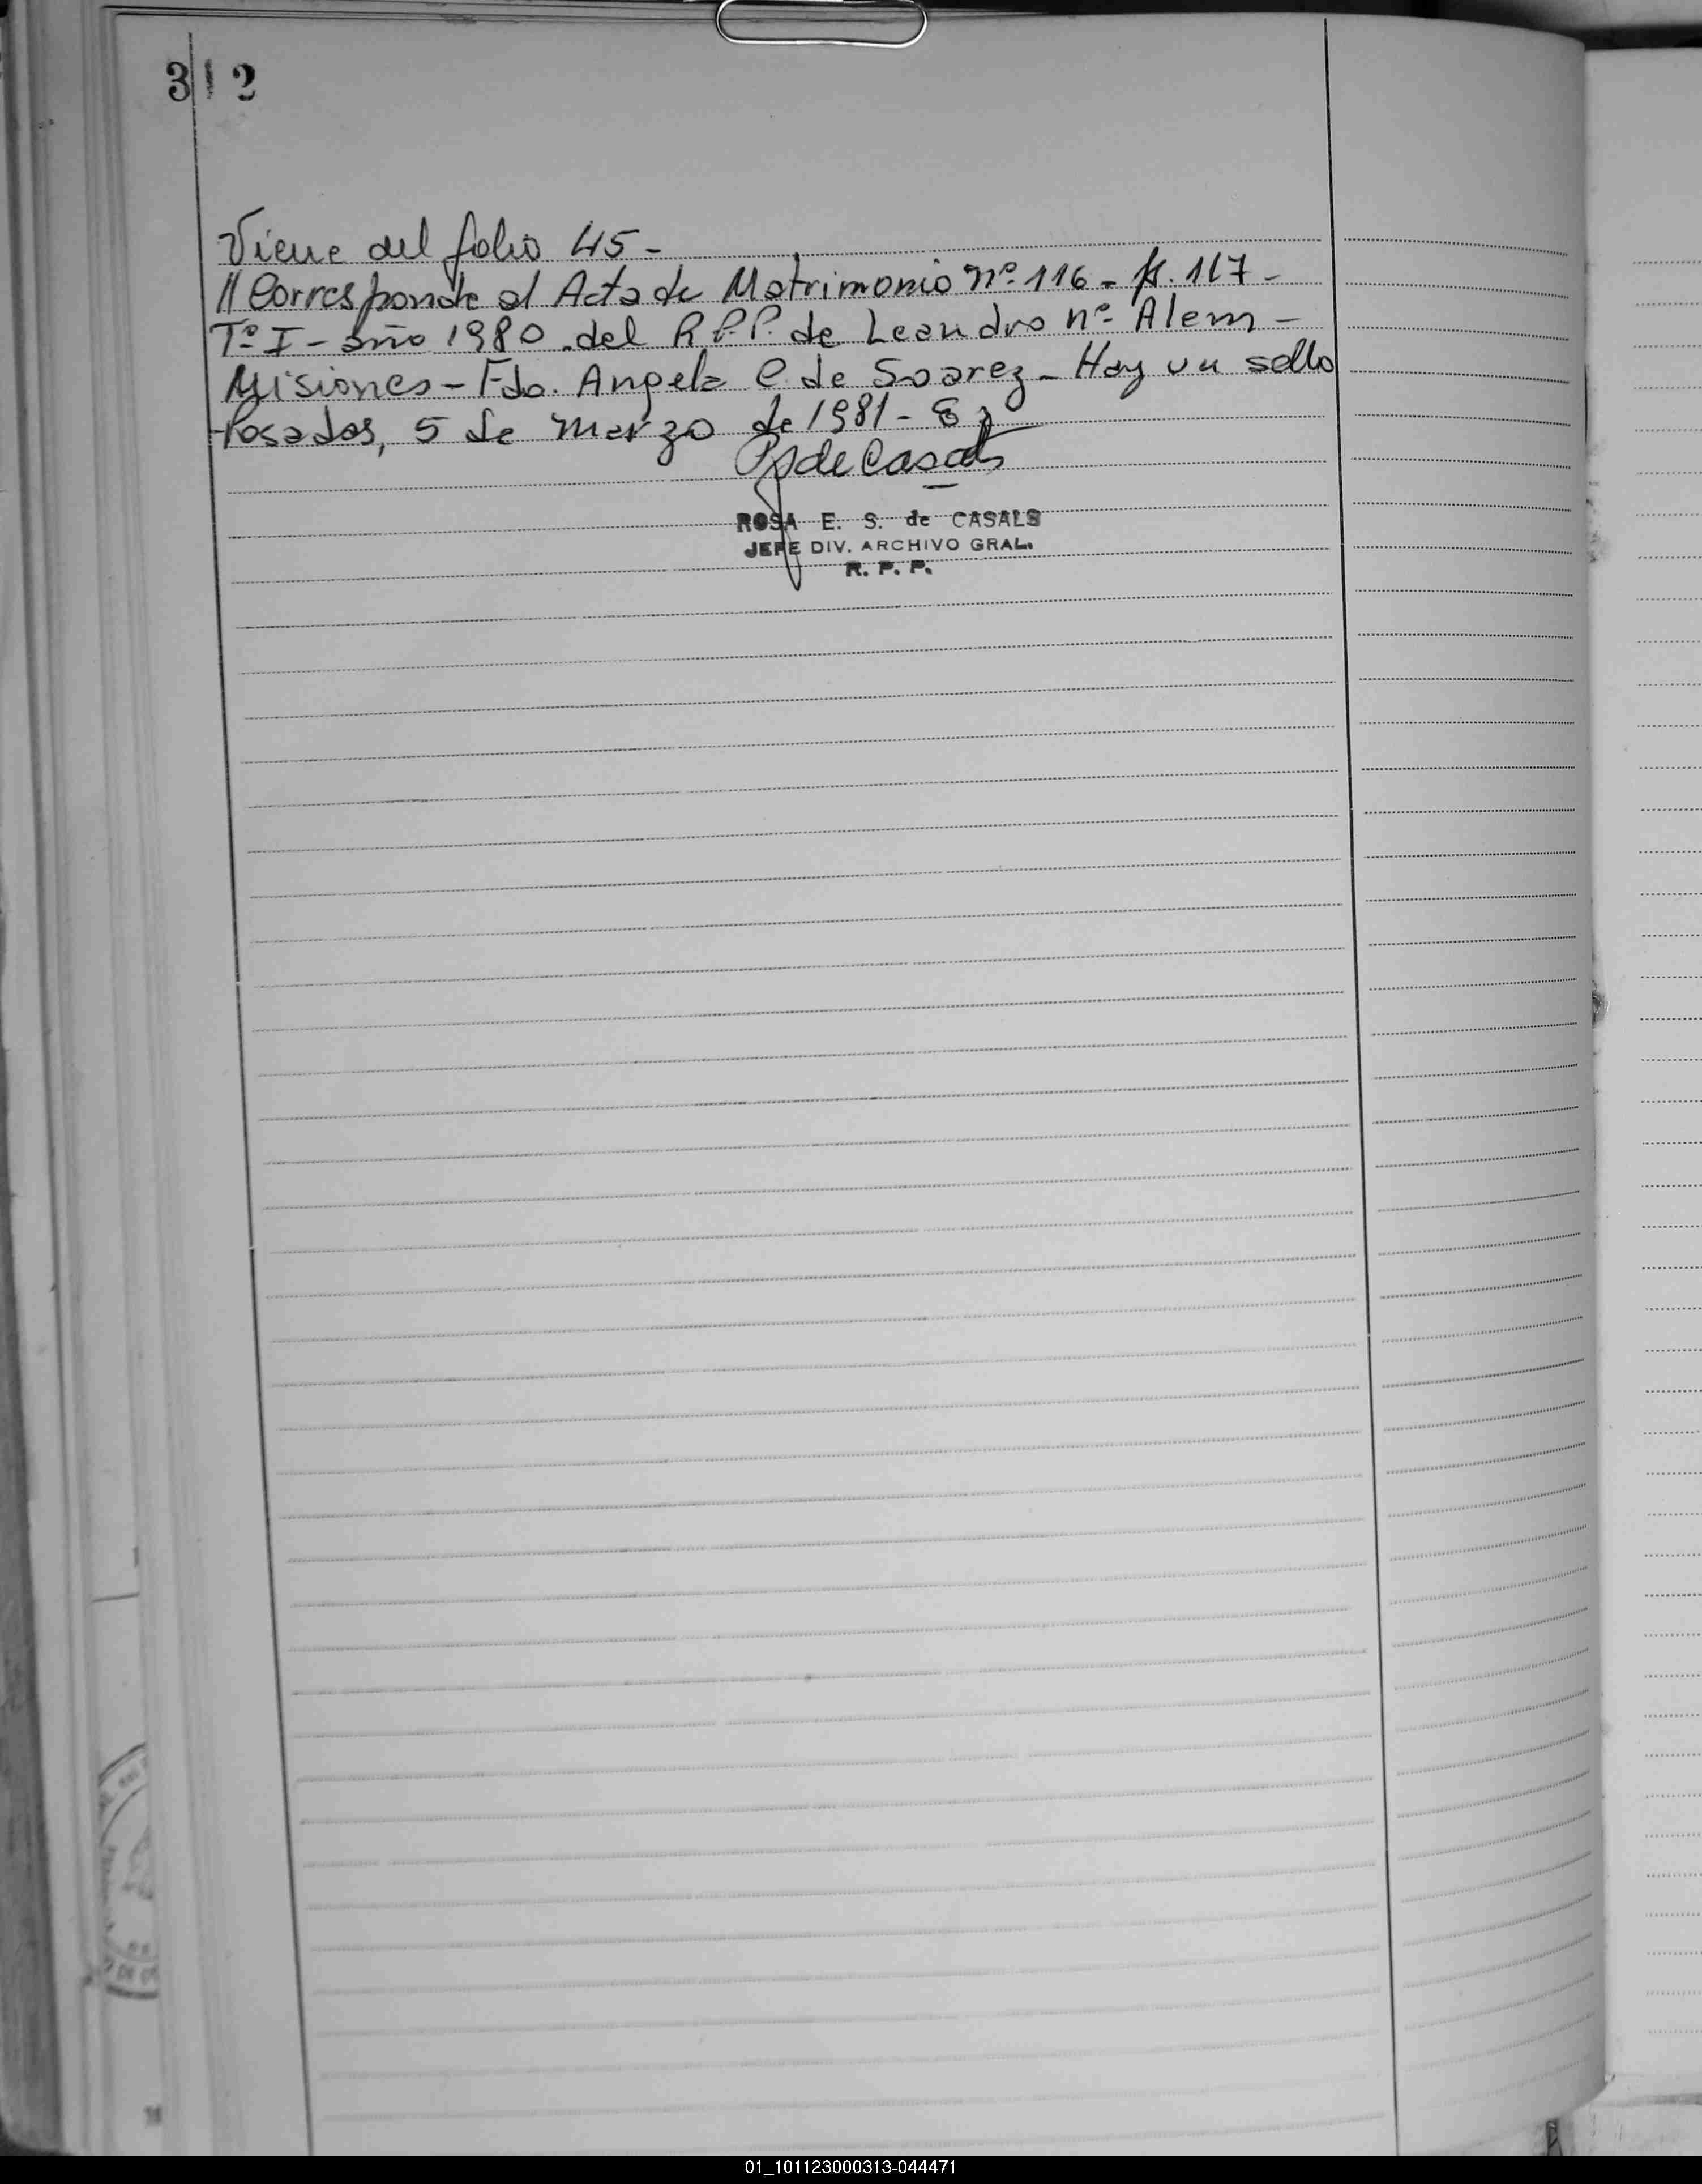 312
Viene del folio 45-
// Corresponde al Acta de Matrimonio nº 116 - fs. 117-
Tº I - año 1980 del R.P.P. de Leandro nº Alem -
Misiones - Fdo. Angela C. de Soarez - Hay un sello
Posadas, 5 de marzo de 1981 -
de Casals
ROSA E. S. de CASALS
JEFE DIV. ARCHIVO GRAL.
R. P. P.
01_101123000313-044471